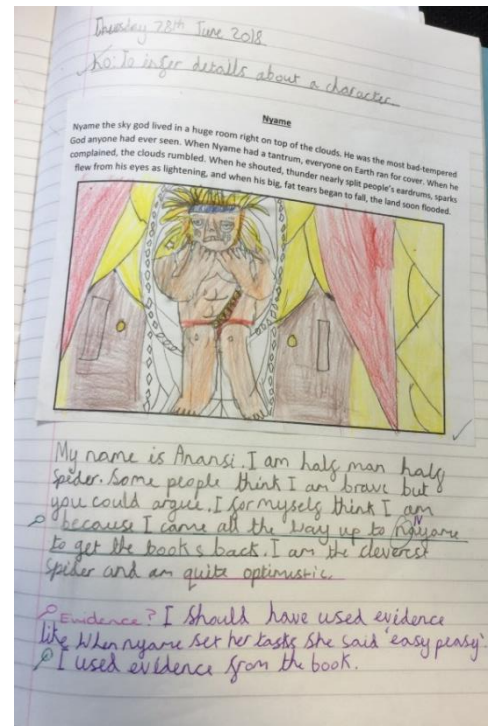 Thursday 28th June 2018
KO: To infer details about a character.
Nyame
Nyame the sky god lived in a huge room right on top of the clouds. He was the most bad-tempered
God anyone had ever seen. When Nyame had a tantrum, everyone on Earth ran for cover. When he
complained, the clouds rumbled. When he shouted, thunder nearly split people's eardrums, sparks
flew from his eyes as lightening, and when his big, fat tears began to fall, the land soon flooded.
My name is Anansi. I am half man half
Spider. Some people think I am brave but
you could argue. I for myself think I am
because I came all the way up to
to get the books back. I am the cleverest
Spider and am quite optimustic.
Evidence? I should have used evidence
like When nyame set her tasks she said 'easy peasy'.
I used evidence from the book.